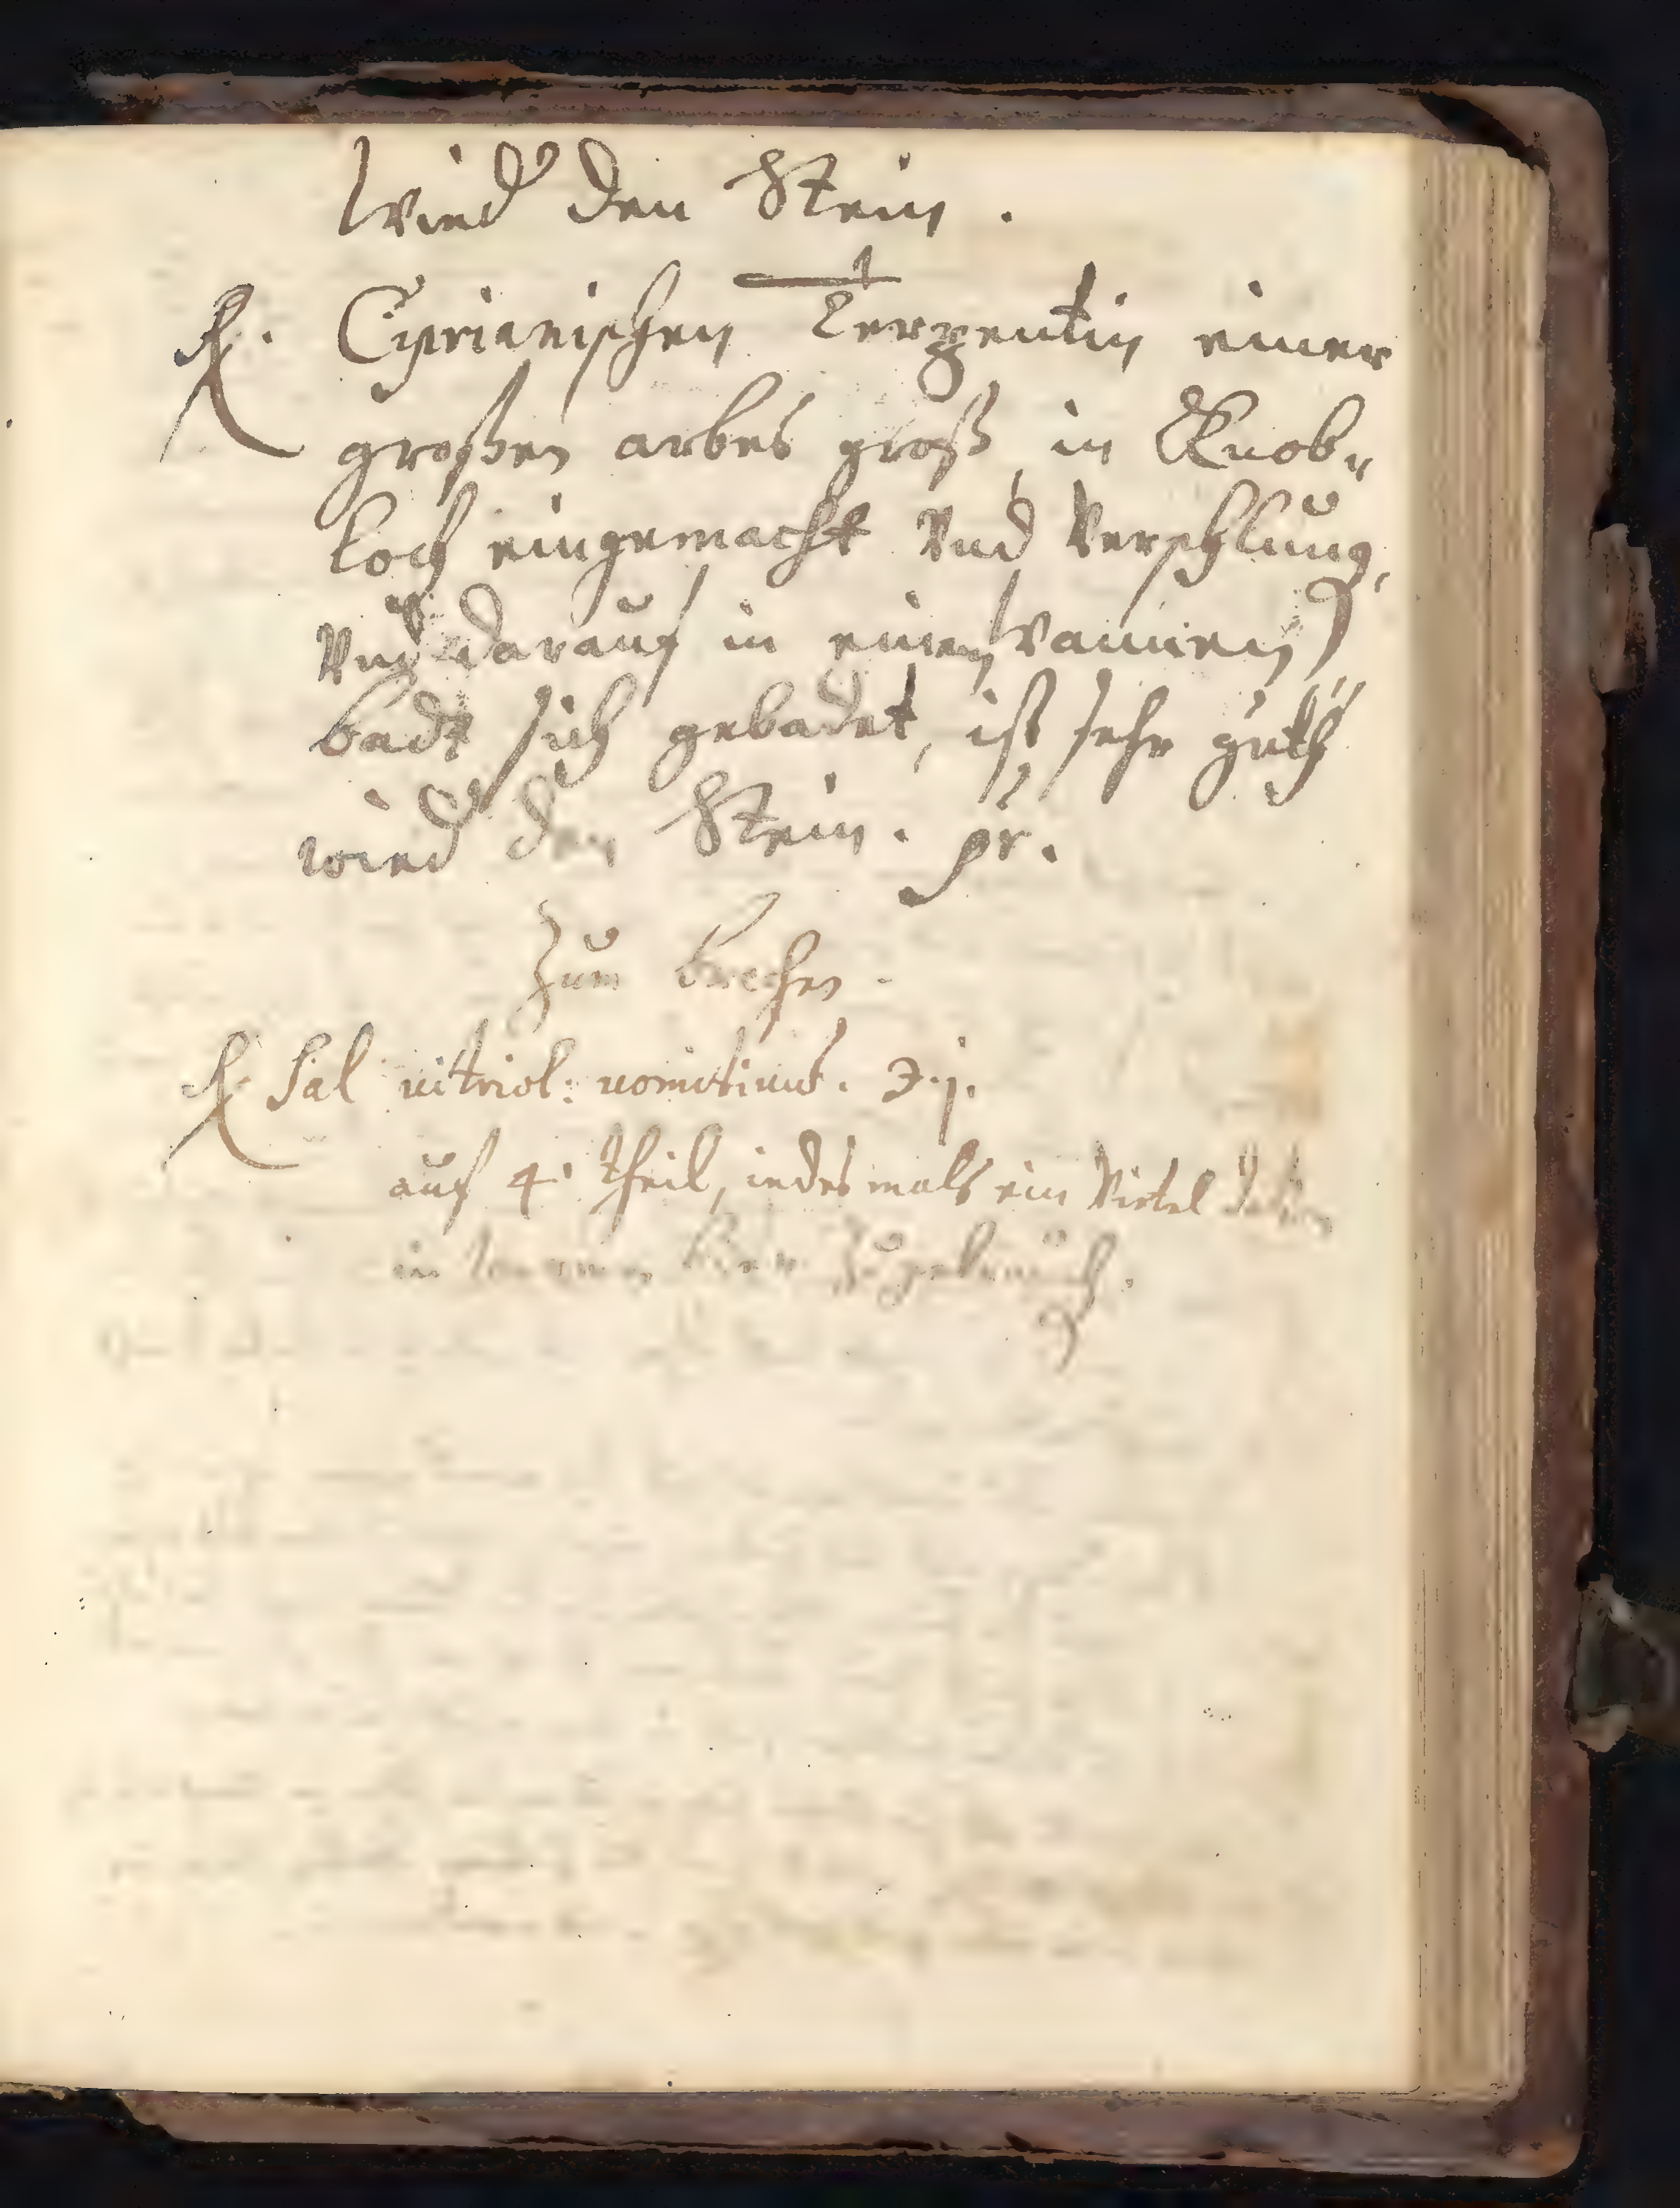 Wieder den Stein.
℞. Ciprianischen Terpentin einer
großen arbes groß, in Knob„
loch eingemacht Vnd Verschlung,
Vnd darauf in einem wannen
badt sich gebadet, ist sehr guth
wieder den Stein. pr.
Zum brechen.
℞ Sal vitriol: vomitivus. ʒ.j.
auf 4 theil, iedes mals ein Virtel
in bier Zugebrauch.